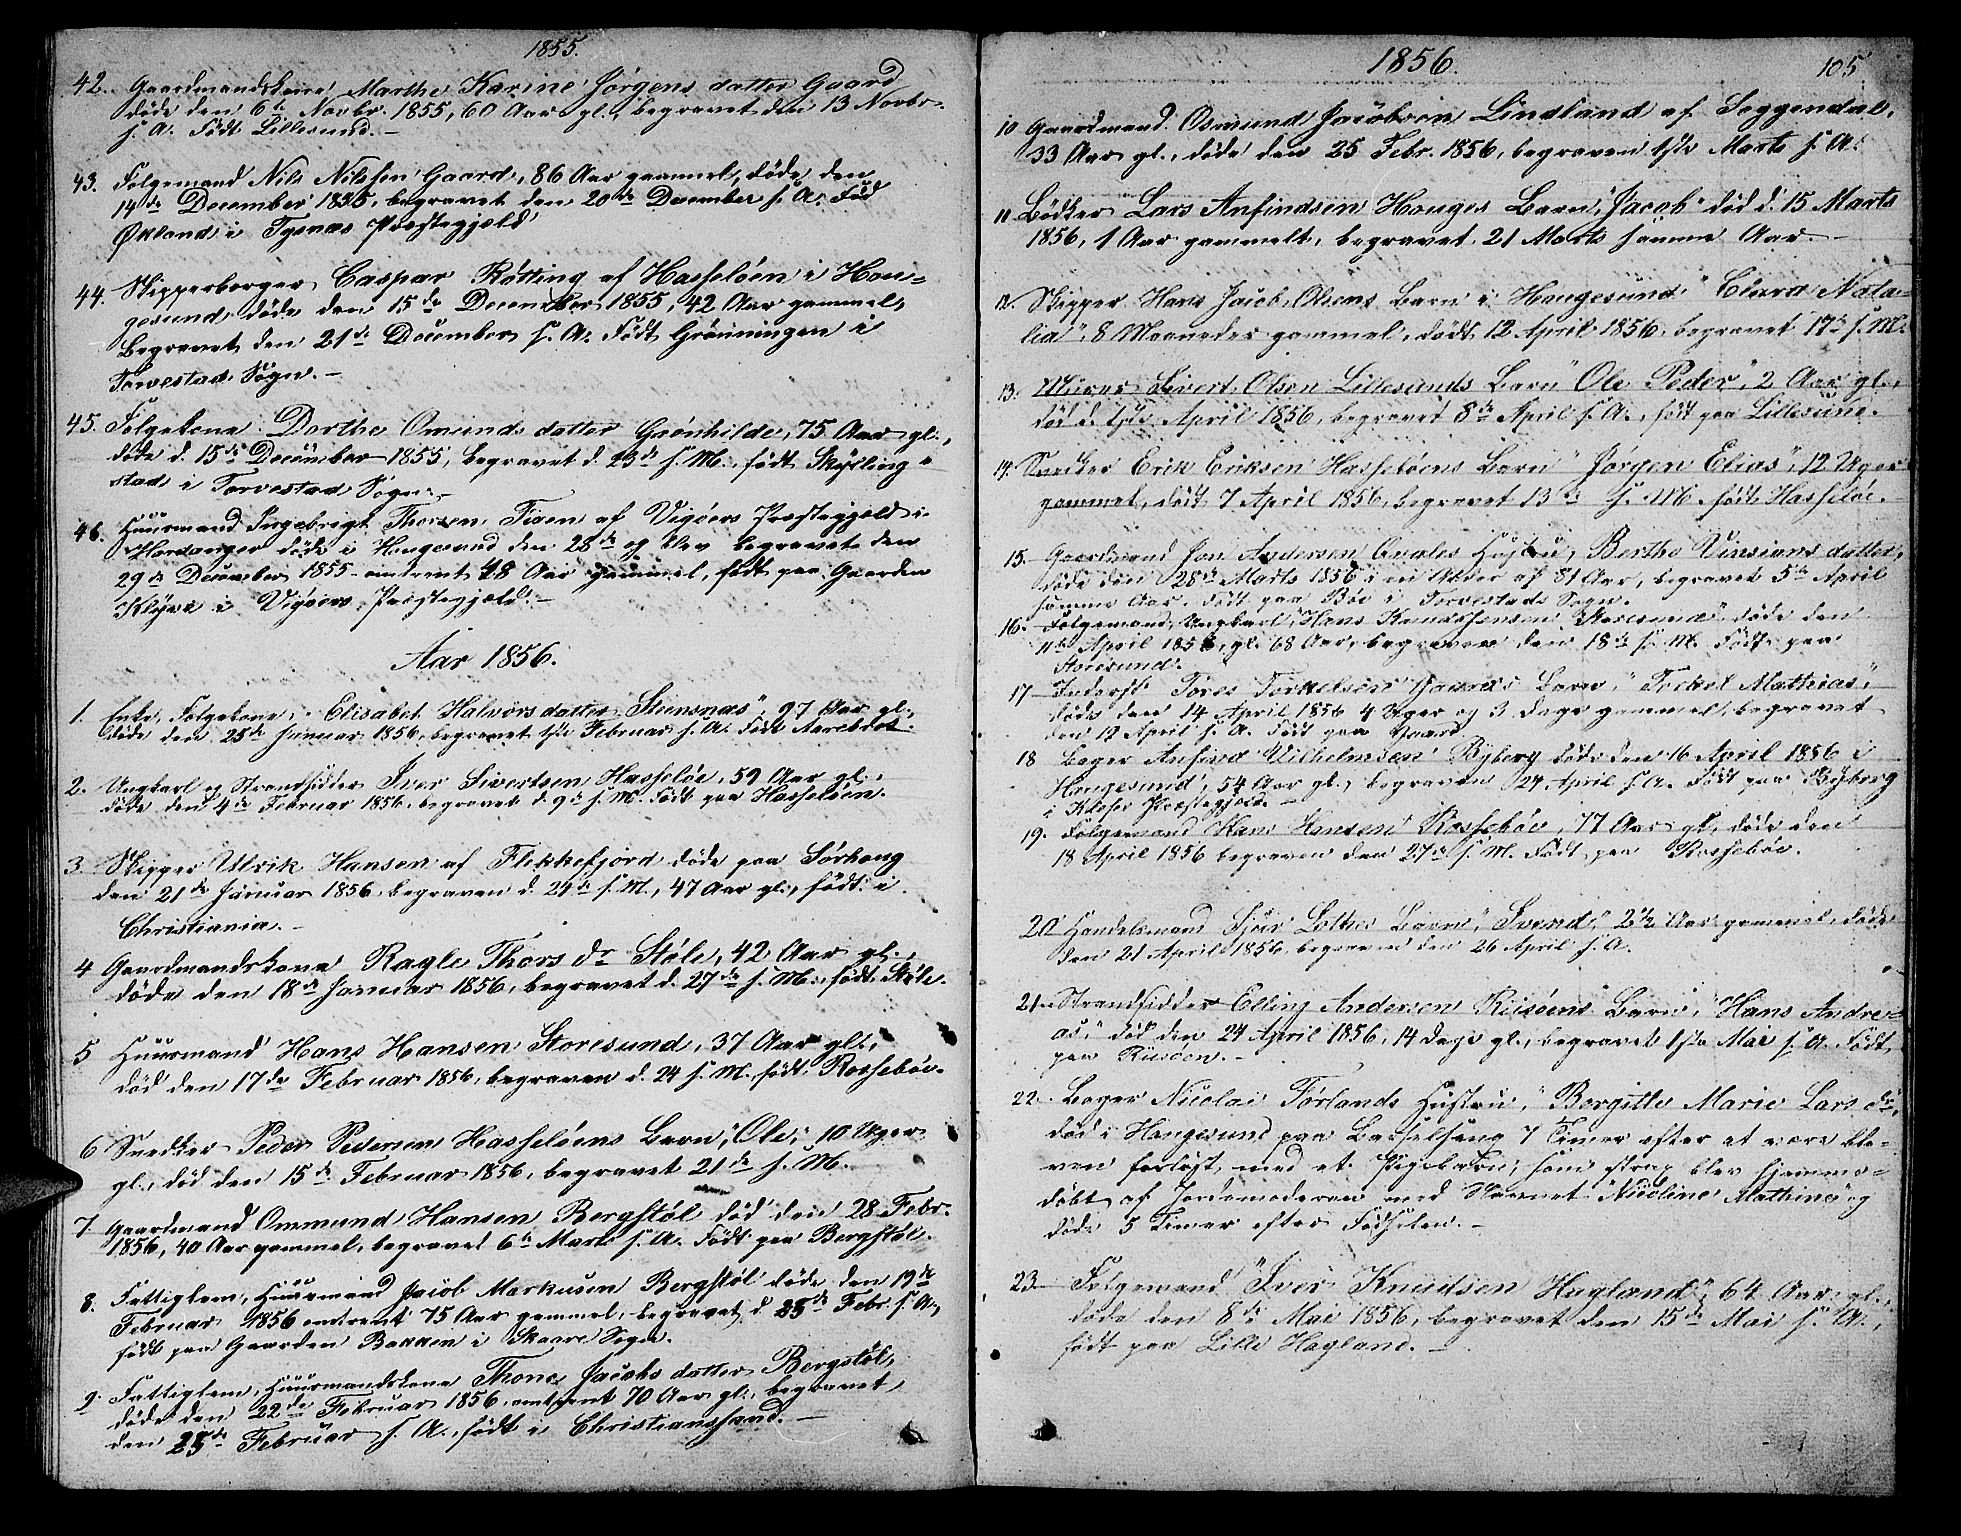 1855.
42. Gaardmandskone Marthe Karine Jørgens datter Gaard
døde den 6te Novbr. 1855, 60 Aar gl., begravet den 13 Novbr.
s. A. Født Lillesund.
43. Følgemand Nils Nilssen Gaard, 86 Aar gammel, døde den
14de December 1855, begravet den 20de December s. A. Fød
Økland i Tysnæs Præstegjeld
44. Skipperborger Caspar Røtting af Hasseløen i Hau-
gesund døde den 15de December 1855, 42 Aar gammel,
begravet den 21de December s. A. Født Grønningen i
Torvestad Sogn.
45. Følgekone Dorthe Omunds datter Grønhilde, 75 Aar gl.,
døde d. 15de December 1855, begravet d. 23de s. M., født Skylling-
stad i Torvestad Sogn.
46. Huusmand Ingebrigt Thorsen Tixen af Vigøers Præstegjeld i
Hardanger døde i Haugesund den 28de og blev begravet den
29de December 1855 omtrent 48 Aar gammel, født paa Gaarden
i Vigøers Præstegjeld.
Aar 1856.
1. Enke, Følgekone, Elisabet Halvorsdatter Steensnæs, 97 Aar gl.,
døde den 25de Januar 1856, begravet 1ste Februar s. A. Født
2. Ungkarl og Strandsidder Iver Sivertsen Hasseløe, 59 Aar gl.,
døde den 4de Februar 1856, begravet d. 9de s. M. Født paa Hasseløen.
3. Skipper Ulrik Hansen af Flekkefjord døde paa Sørhoug
den 21de Januar 1856 begraven d. 24de s. M., 47 Aar gl., født i
Christiania.
4 Gaardmandskone Ragle Thors dr Støle, 42 Aar gl.,
døde den 18de Januar 1856, begravet d. 27de s. M., født Støle.
5 Huusmand Hans Hansen Storesund, 37 Aar gl.,
død den 17de Februar 1856, begraven d. 24 s. M., født Rossebøe.
6 Snedker Peder Pedersen Hasseløens Barn, "Ole", 10 Uger
gl., død den 15de Februar 1856, begravet 21de s. M.
7. Gaardmand Ommund Hansen Bergstøl død den 28 Febr.
1856, 40 Aar gammel, begravet 6te Marts s. A. Født paa Bergstøl.
8. Fattiglem, Huusmand Jacob Markusen Bergstøl døde den 19de
Februar 1856 omtrent 75 Aar gammel, begravet d. 25de Febr. s. A.,
født paa Gaarden Bakken i Skaare Sogn.
9. Fattiglem, Huusmandskone Thone Jacobs datter Bergstøl,
døde den 22de Februar 1856, omtrent 70 Aar gl., begravet
den 25de Februar s. A., født i Christianssand.
1856.
105
10 Gaardmand Osmund Jacobsen Lindland af Soggendal,
33 Aar gl., døde den 25 Febr. 1856, begraven 1ste Marts s. A.
11. Bødker Lars Anfindsen Hauges Barn, "Jacob" død d. 15 Marts
1856, 1 Aar gammelt, begravet 21 Marts samme Aar.
12. Skipper Hans Jacob Olsens Barn i Haugesund "Clara Nata-
lia", 8 Maaneder gammel, dødt 12 April 1856, begravet 17de s. M.
13. Murer Sivert Olsen Lillesunds Barn "Ole Peder", 2 Aar gl.,
død d. 1ste April 1856, begravet 8de April s. A., født paa Lillesund.
14. Snedker Erik Eriksen Hasseløens Barn "Jørgen Elias", 12 Uger
gammel, dødt 7 April 1856, begravet 13de s. M. født Hasseløe.
15. Gaardmand Jon Andersen Qvales Hustru, Berthe Vinsians datter,
døde den 28de Marts 1856 i en Alder af 81 Aar, begravet 5te April
samme Aar. Født paa Bøe i Torvestads Sogn.
16. Følgemand, Ungkarl, "Hans Storesund", døde den
11te April 1856, gl. 68 Aar, begraven den 18de s. M. Født paa
Storesund.
17 Inderst Tores Torkelsen Gaards Barn, "Torkel Mathias",
døde den 14 April 1856 4 Uger og 3 Dage gammel, begravet
den 19 April s. A. Født paa Gaard.
18 Bager Anfind Vilhelmsen Byberg døde den 16 April 1856 i
Haugesund, 54 Aar gl., begraven 24 April s. A. Født paa Byberg
i Præstegjeld.
19. Følgemand Hans Hansen Rossebøe, 77 Aar gl., døde den
18 April 1856 begraven den 27de s. M. Født paa Rossebøe.
20 Handelsmand Sjur Lothes Barn, "Svend", 2½ Aar gammel, døde
den 21 April 1856, begraven den 26 April s. A.
21. Strandsidder Elling Andersen Risøens Barn, "Hans Andre-
as", død den 24 April 1856, 14 Dage gl., begravet 1ste Mai s. A. Født
paa Risøen.
22. Bager Nicolai Førlands Hustru, "Borgitte Marie Lars dr",
død i Haugesund paa Barselseng 7 Timer efter at være ble-
ven forløst med et Pigebarn, som strax blev hjemme-
døbt af Jordemoderen med Navnet "Nicoline Mathine" og
døde 5 Timer efter Fødselen.
23. Følgemand "Iver Knudsen Hagland", 64 Aar gl.,
døde den 8de Mai 1856, begravet den 15de Mai s. A.,
født paa Lille Hagland.